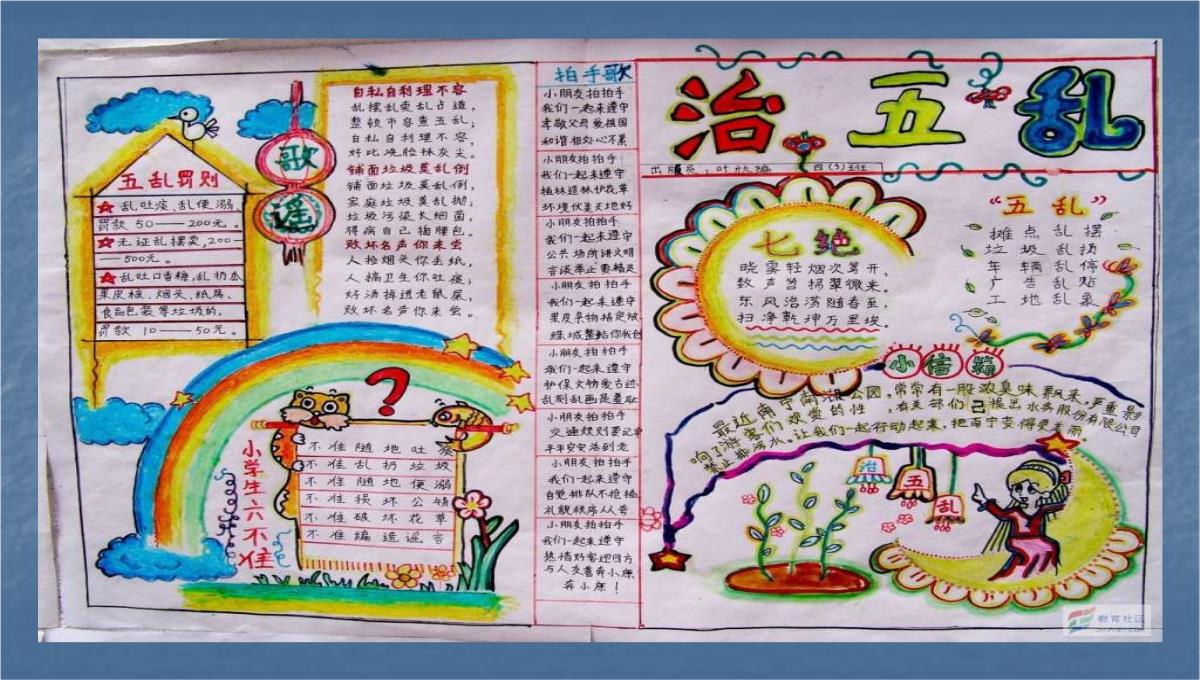 五乱罚则
乱吐痰、乱便溺
罚款50——200元。
无证乱摆卖,200
——500元。
乱吐口香糖,乱扔瓜
果皮核、烟头、纸屑、
食品包装等垃圾的,
罚款 10——50元。
歌
谣
自私自利理不容
乱摆乱卖乱占道,
整顿市容查五乱;
自私自利理不容,
好比烧脸抹灰尖。
铺面垃圾莫乱倒
铺面垃圾莫乱倒,
家庭垃圾莫乱抛;
垃圾污染长细菌,
得病自己掏腰包。
败坏名声你来尝
人捡烟头你丢纸,
人搞卫生你吐痰;
好汤掉进老鼠屎,
败坏名声你来尝。
?
小学生六不准
不准随地吐痰
不准乱扔垃圾
不准随地便溺
不准损坏公物
不准破坏花草
不准编造谣言
拍手歌
小朋友拍拍手
我们一起来遵守
孝敬父母爱祖国
和谐相处心不累
小朋友拍拍手
我们一起来遵守
植树造林护花草
环境优美天地好
小朋友拍拍手
我们一起来遵守
公共场所讲文明
言谈举止要精是
小朋友拍拍手
我们一起来遵守
果皮杂物指定放
绿城整洁你我创
小朋友拍拍手
我们一起来遵守
护保文物爱古迹
乱刻乱画是羞耻
小朋友拍拍手
交通规则要记牢
平平安安活到老
小朋友拍拍手
我们一起来遵守
自觉排队不抢插
礼貌秩序人人夸
小朋友拍拍手
我们一起来遵守
热情好客迎四方
与人友善奔小康
奔小康!
治五乱
出版员:叶
四(5)班
七绝
晓雾轻烟次第开,
数声笛拐翠微来。
东风治涝随春至,
扫净乾坤万里埃。
“五乱”
摊点乱摆
垃圾乱扔
车辆乱停
广告乱贴
工地乱象
小信箱
最近南宁南湖公园,常常有一股浓臭味飘来,严重影
响了游客们欢赏的性,有关部们已提出水务股份有限公司
禁止排污水,让我们一起行动起来,把南宁变得更美丽
治
五
乱
教育社区